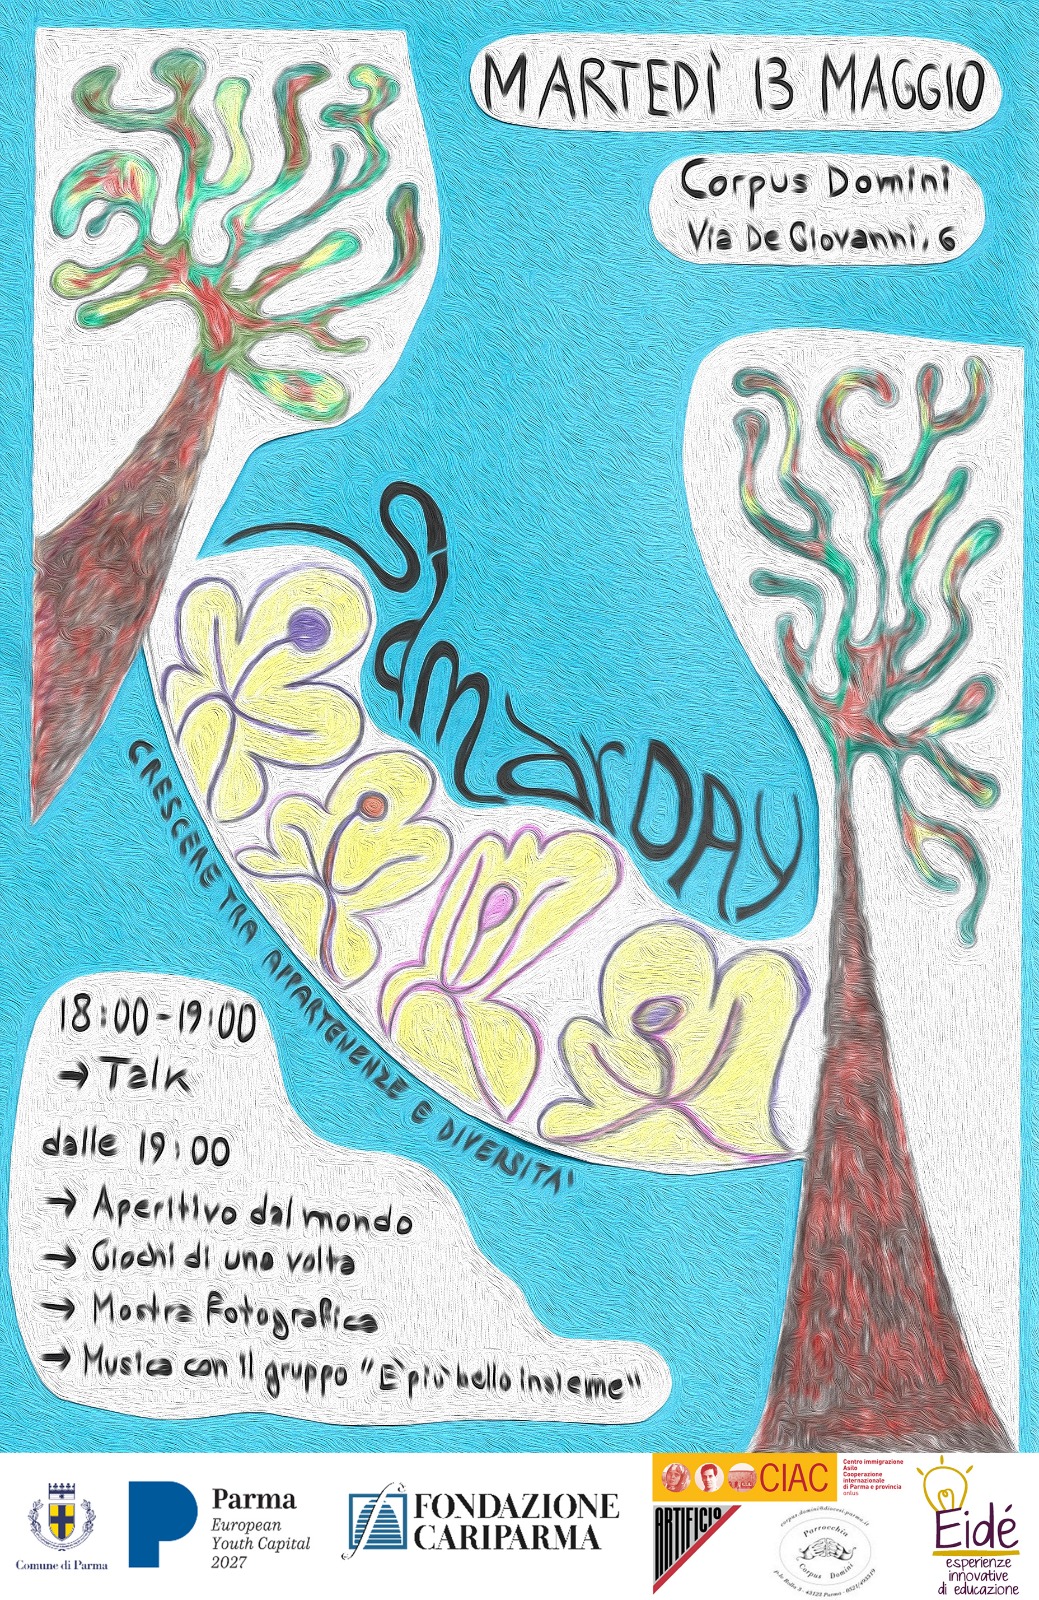 MARTEDÌ 13 MAGGIO
Corpus Domini
Via De Giovanni, 6
SamarDAY
CRESCERE TRA APPARTENENZE E DIVERSITA'
18:00-19:00
→ Talk
dalle 19:00
→ Aperitivo dal mondo
→ Giochi di una volta
→ Mostra fotografica
→ Musica con il gruppo "E' più bello insieme"
Comune di Parma
P
Parma
European
Youth Capital
2027
FONDAZIONE
CARIPARMA
CIAC
Centro immigrazione
Asilo
Cooperazione
internazionale
di Parma e provincia
onlus
ARTIFICIO
corpus.domini@diocesi.parma.it
Parrocchia
Corpus Domini
Eidé
esperienze
innovative
di educazione